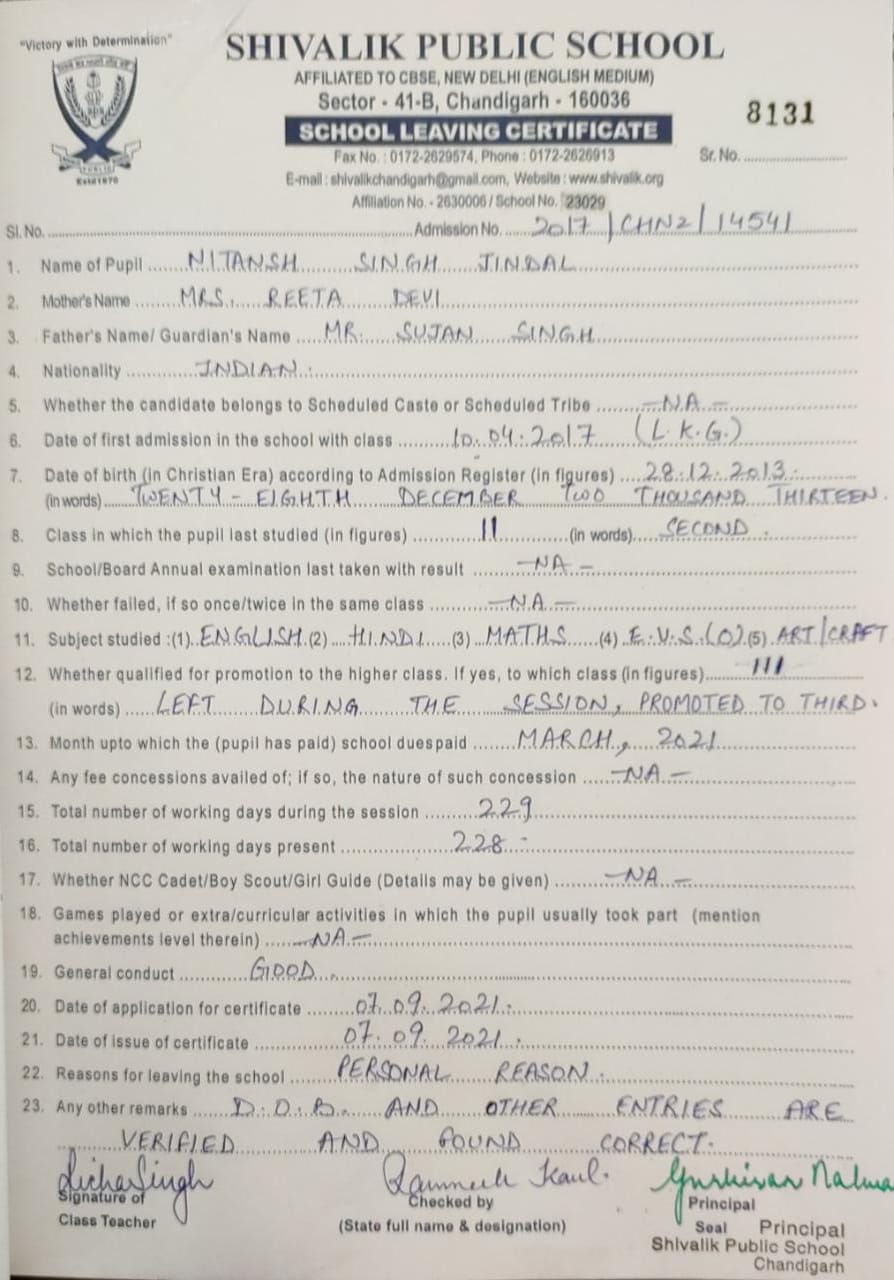 "Victory with Determination"
SHIVALIK PUBLIC SCHOOL
AFFILIATED TO CBSE, NEW DELHI (ENGLISH MEDIUM)
Sector - 41-B, Chandigarh - 160036
8131
SCHOOL LEAVING CERTIFICATE
Fax No. : 0172-2629574, Phone : 0172-2626913
Sr. No.
E-mail : shivalikchandigarh@gmail.com, Website : www.shivalik.org
Affiliation No. - 2630006 / School No. 23029
Sl. No. Admission No. 2017/CHN2/14541
1. Name of Pupil NITANSH SINGH JINDAL
2. Mother's Name MRS. REETA DEVI
3. Father's Name/ Guardian's Name MR. SUJAN SINGH
4. Nationality INDIAN.
5. Whether the candidate belongs to Scheduled Caste or Scheduled Tribe -NA-
6. Date of first admission in the school with class 10.04.2017 (L.K.G.)
7. Date of birth (in Christian Era) according to Admission Register (in figures) 28.12.2013.
(in words) TWENTY-EIGHTH DECEMBER TWO THOUSAND THIRTEEN.
8. Class in which the pupil last studied (in figures) II (in words) SECOND.
9. School/Board Annual examination last taken with result -NA-
10. Whether failed, if so once/twice in the same class -NA-
11. Subject studied :(1) ENGLISH (2) HINDI (3) MATHS (4) E.V.S.(O) (5) ART/CRAFT
12. Whether qualified for promotion to the higher class. If yes, to which class (in figures) III
(in words) LEFT DURING THE SESSION, PROMOTED TO THIRD.
13. Month upto which the (pupil has paid) school duespaid MARCH, 2021
14. Any fee concessions availed of; if so, the nature of such concession -NA-
15. Total number of working days during the session 229
16. Total number of working days present 228
17. Whether NCC Cadet/Boy Scout/Girl Guide (Details may be given) -NA-
18. Games played or extra/curricular activities in which the pupil usually took part (mention
achievements level therein) -NA-
19. General conduct GOOD.
20. Date of application for certificate 07.09.2021.
21. Date of issue of certificate 07.09.2021.
22. Reasons for leaving the school PERSONAL REASON.
23. Any other remarks D.O.B. AND OTHER ENTRIES ARE
VERIFIED AND FOUND CORRECT.
Richa Singh
Kaul.
Signature of Checked by Principal
Class Teacher (State full name & designation) Seal Principal
Shivalik Public School
Chandigarh